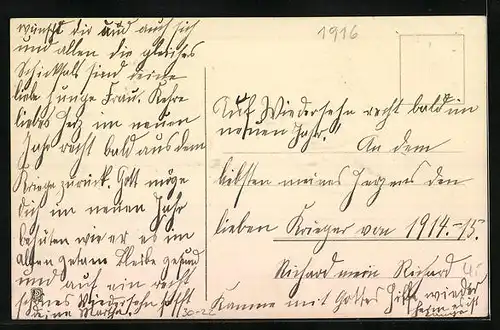 1916
wünscht dir und auch sich
und allen die gleiches
Schicksals sind deine
liebe junge Frau. Kehre
liebes Herz im neuen
Jahr recht bald aus dem
Kriege zurück. Gott möge
dich im neuen Jahr
behüten wie er es im
alten getan. bleibe gesund
und auf ein recht
Wiedersehn hofft
deine Martha.
30-26
Auf Wiedersehn recht bald im
neuen Jahr!"
An dem
liebsten meines Herzens den
lieben Krieger von 1914.-15.
Richard mein Richard
Komme mit Gottes Hilfe wieder